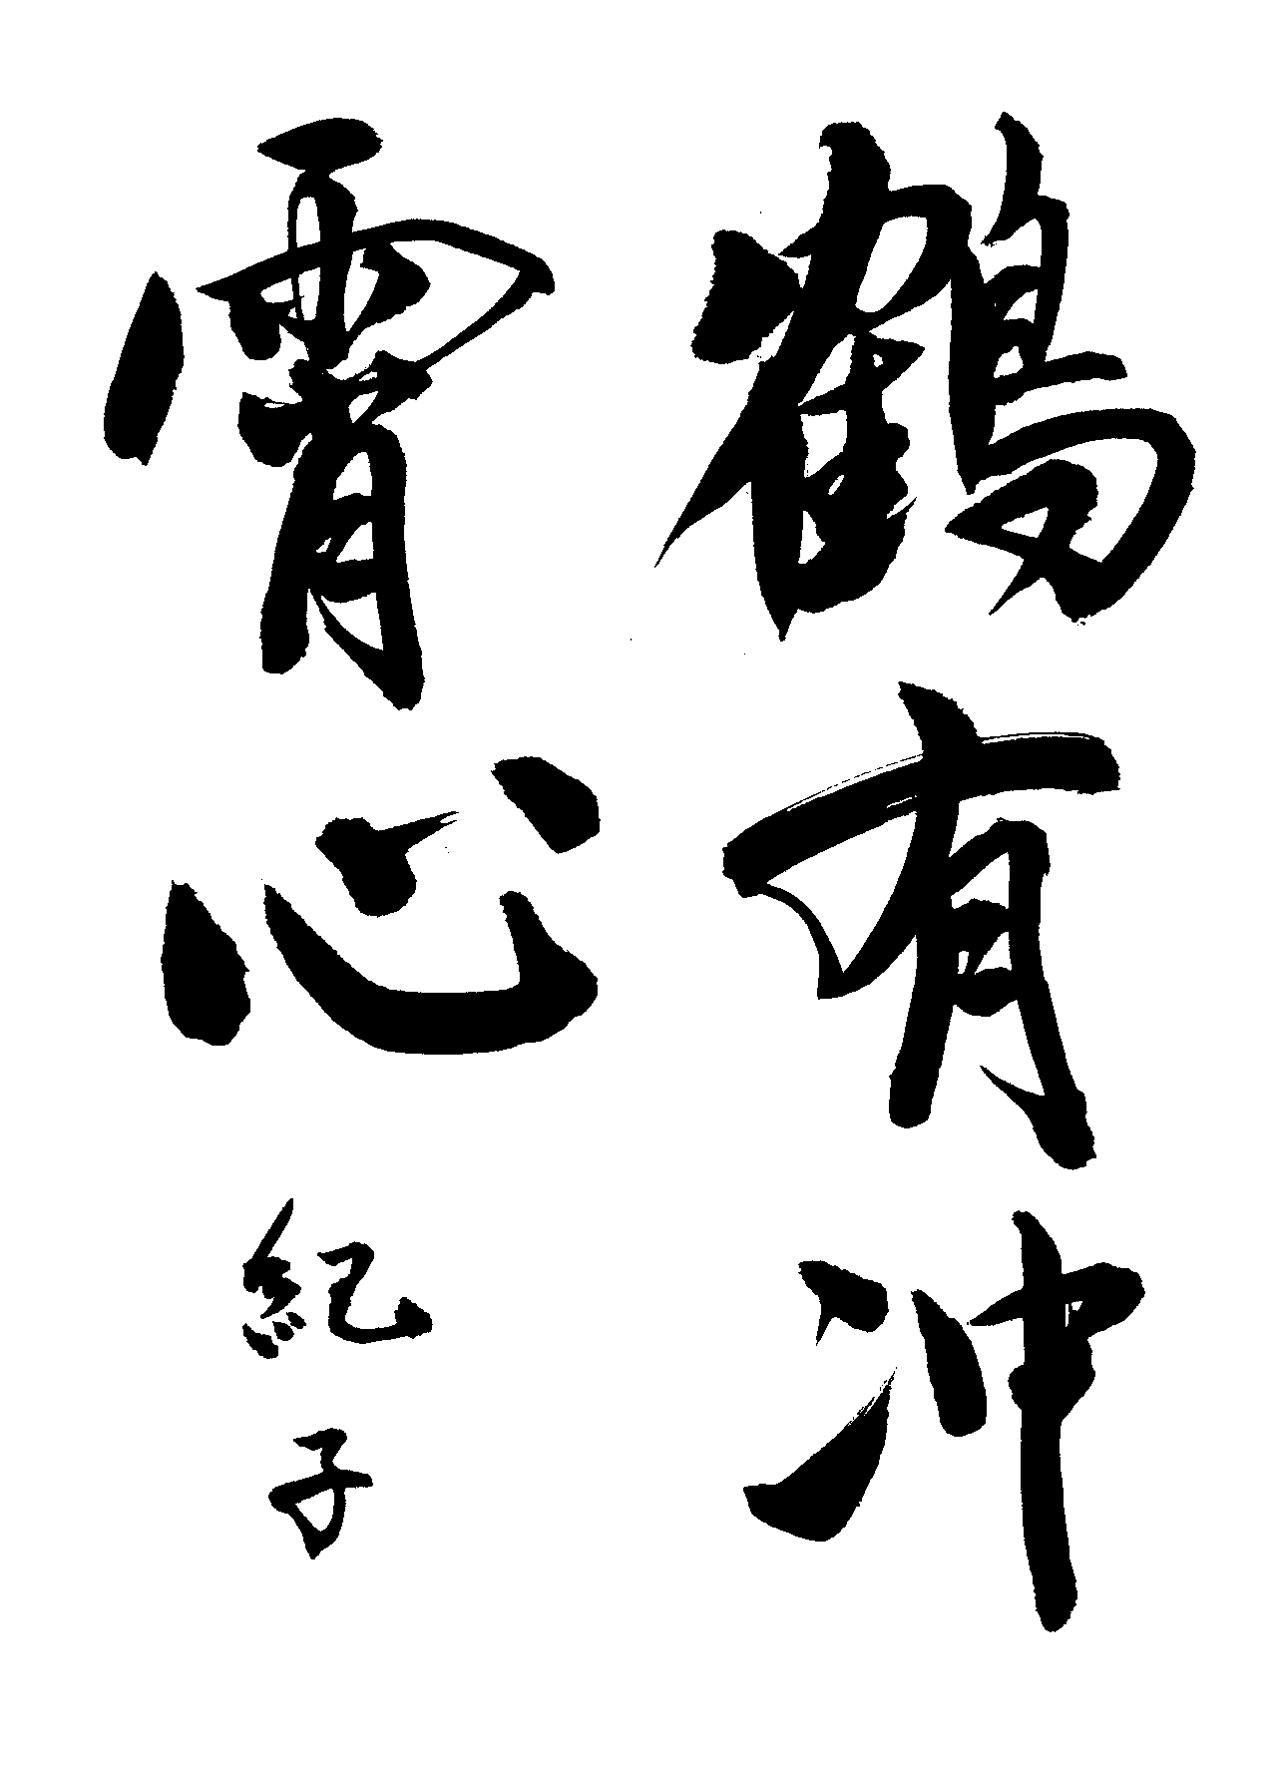 鶴有冲
霄心
紀子